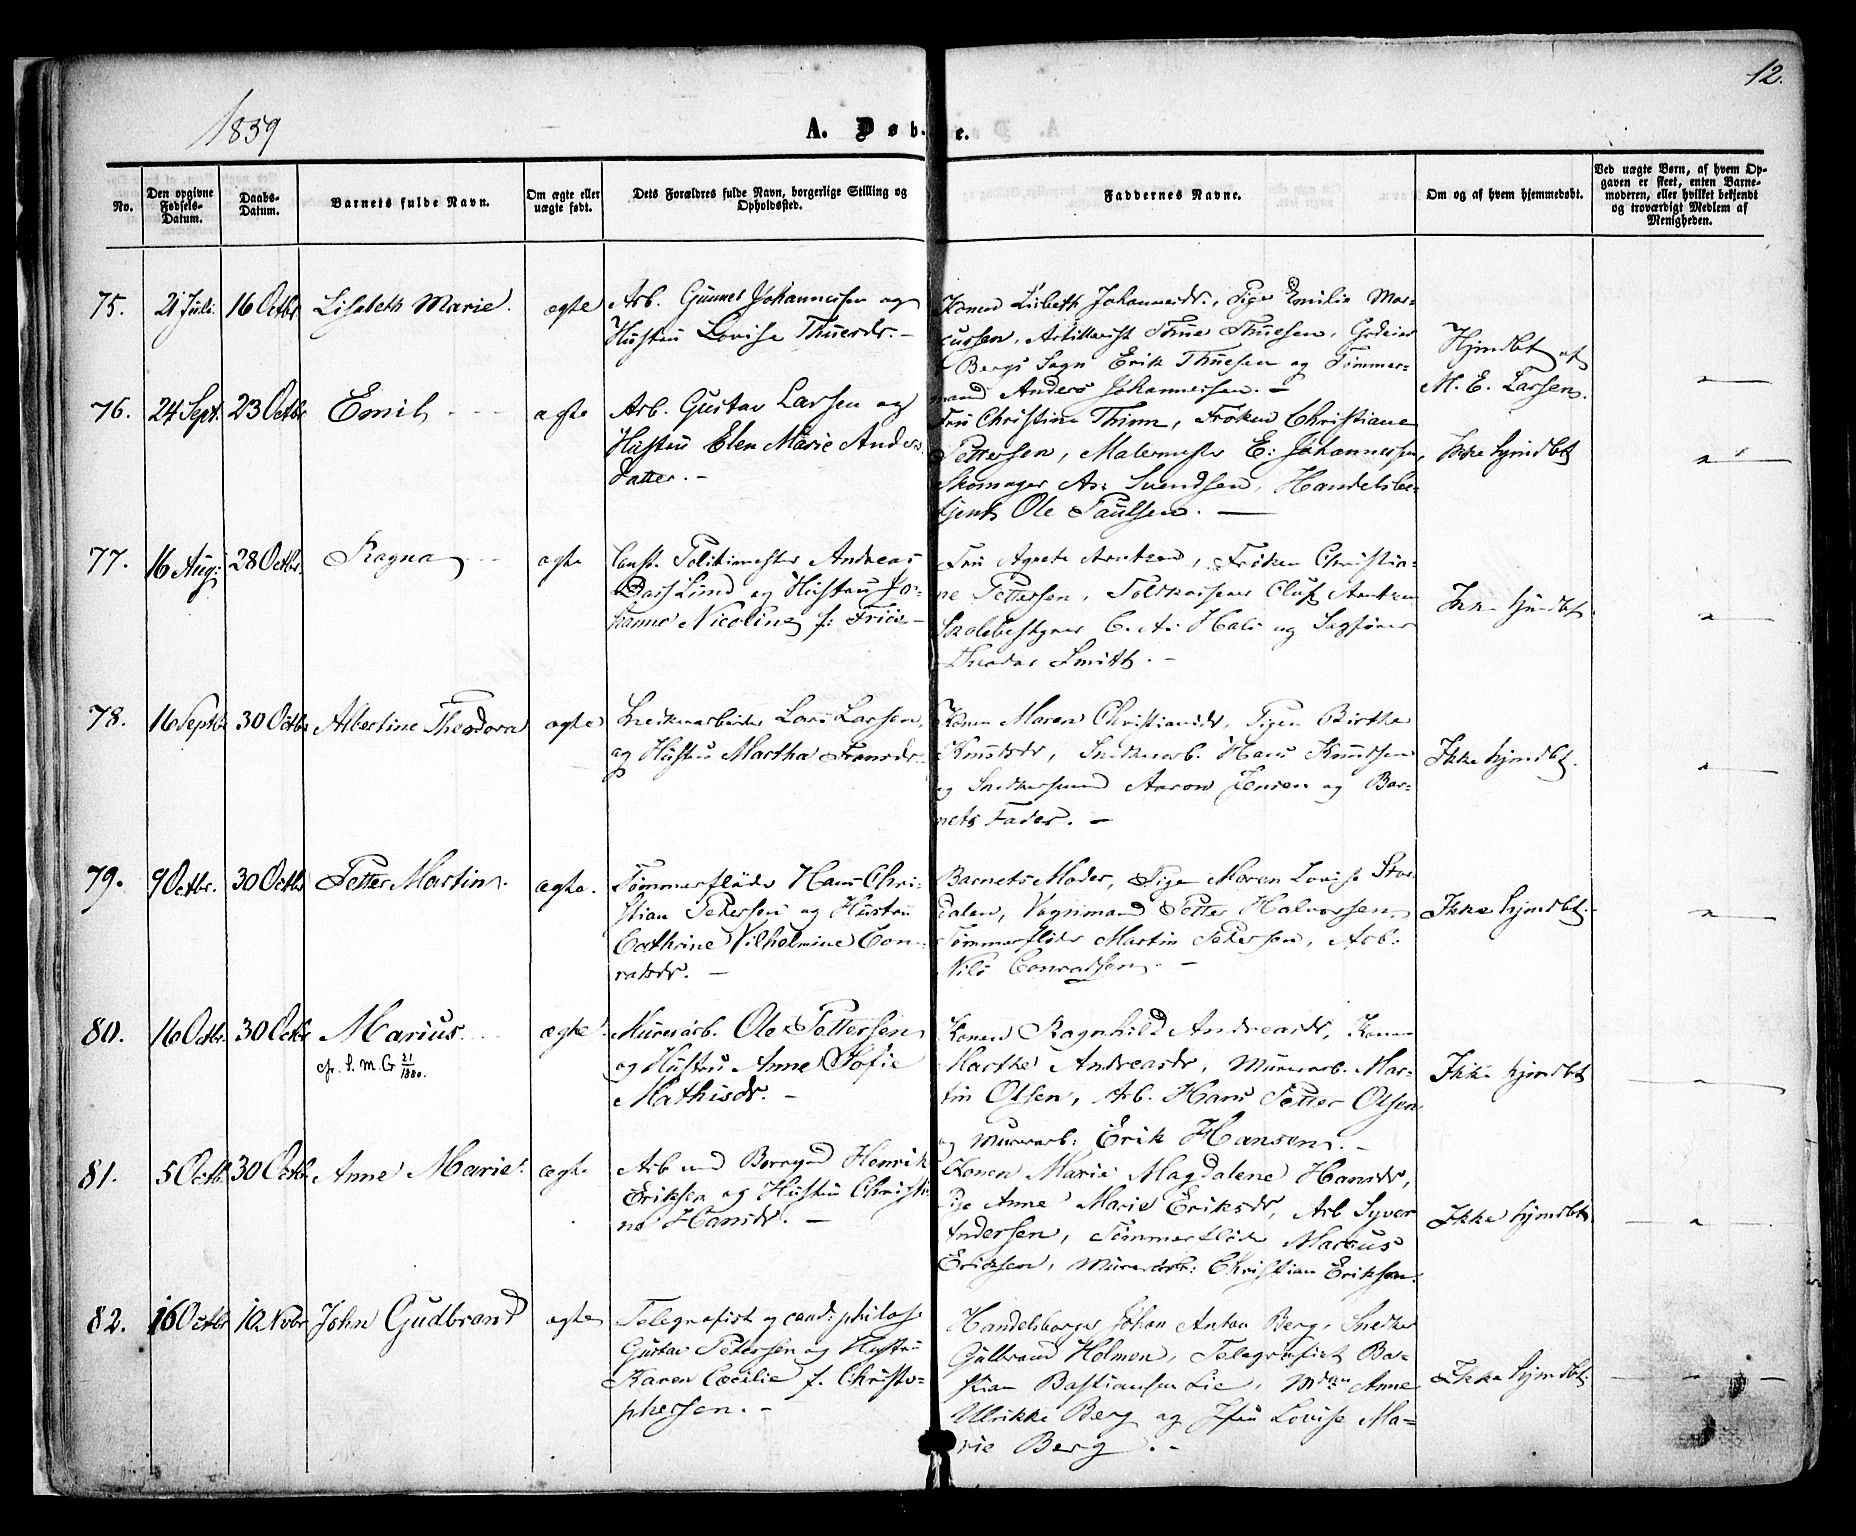 12.
1859
A. Døbte.
No.
Den opgivne Fødsels-Datum.
Daabs-Datum.
Barnets fulde Navn.
Om ægte eller uægte født.
Dets Forældres fulde Navn, borgerlige Stilling og Opholdssted.
Faddernes Navne.
Om og af hvem hjemmedøbt.
Ved uægte Børn, af hvem Opgaven er skeet, enten Barnemoderen, eller hvilket bekjendt og troværdigt Medlem af Menigheden.
75. 21 Juli 16 Octbr Lisabeth Marie. ægte
Arb. Gunner Johannessen og
Hustru Lovise Thuersdr. -
Konen Lisbeth Johannesdr., Pige Emilie Mar-
cussen, Artillerist Thue Thuesen,
Bergs Sogn Erik Thuesen og Tømmer-
mand Anders Johannessen. -
Hjmdbt af
M. E. Larsen.
76. 24 Sept. 23 Octbr Emil ægte
Arb. Gustav Larsen og
Hustru Elen Marie Anders
Datter. -
Fru Christine Thinn, Frøken Christiane
Pettersen, Malermester E: Johannessen,
Skomager As: Svendsen, Handelsbe-
tjent Ole Paulsen. -
Ikke hjmdbt
77. 16 Aug: 28 Octbr. Ragna ægte
Const. Politimester Andreas
Dass Lund og Hustru Jo-
hanne Nicoline f: Friis -
Fru Agnete Arntzen, Frøken Christia-
ne Pettersen, Toldkasserer Oluf Arntzen
Skolebestyrer C. A: Hals og Sagfører
Theodor Smith. -
Ikke hjmdbt.
78. 16 Septbr 30 Octbr Albertine Theodora ægte
Snedkerarbeider Lars Larsen,
og Hustru Martha Fransdr. -
Konen Maren Christiansdr, Pigen Birthe
Knudsdr, Snedkerarb. Hans Knudsen
og Snedkersvend Aaron Jensen og Bar-
nets Fader. -
Ikke hjmdbt.
79. 9 Octbr. 30 Octbr Petter Martin. ægte.
Tømmerfløder Hans Chri-
stian Petersen og Hustru
Cathrine Vilhelmine Con-
radsdr. -
Barnets Moder, Pige Maren Lovise Stor-
dalen, Vognmand Petter Halvorsen,
Tømmerfløder Martin Petersen, Arb.
Nils Conradsen. -
Ikke hjmdbt.
80. 16 Octbr. 30 Octbr Marius. ægte.
cfr. S. M. G 21/1880.
Murerarb. Ole Pettersen
og Hustru Anne Sofie
Mathisdr. -
Konen Ragnhild Andreasdr, Konen
Marthe Andreasdr, Murerarb. Mar-
tin Olsen, Arb. Hans Petter Olsen
og Murerarb: Erik Hansen. -
Ikke hjmdbt
81. 5 Octbr 30 Octbr Anne Marie. ægte
Arb ved Borregaard Henrik
Eriksen og Hustru Christi-
ne Hansdr. -
Konen Marie Magdalene Hansdr,
Pige Anne Marie Eriksdr, Arb Syver
Andersen, Tømmerfløder Marcus
Eriksen, Murerarb: Christian Eriksen.
Ikke hjmdbt
82. 16 Octbr 10 Novbr John Gudbrand ægte
Telegrafist og cand: philos
Gustav Petersen og Hustru
Karen Cecilie f. Christo-
phersen. -
Handelsborger Johan Anton Berg, Snedker
Gulbrand Holmen, Telegrafist Ba-
stian Bastiansen Lie, Mdm Anne
Ulrikke Berg og Jfru Lovise Ma-
rie Berg. -
Ikke hjmdbt